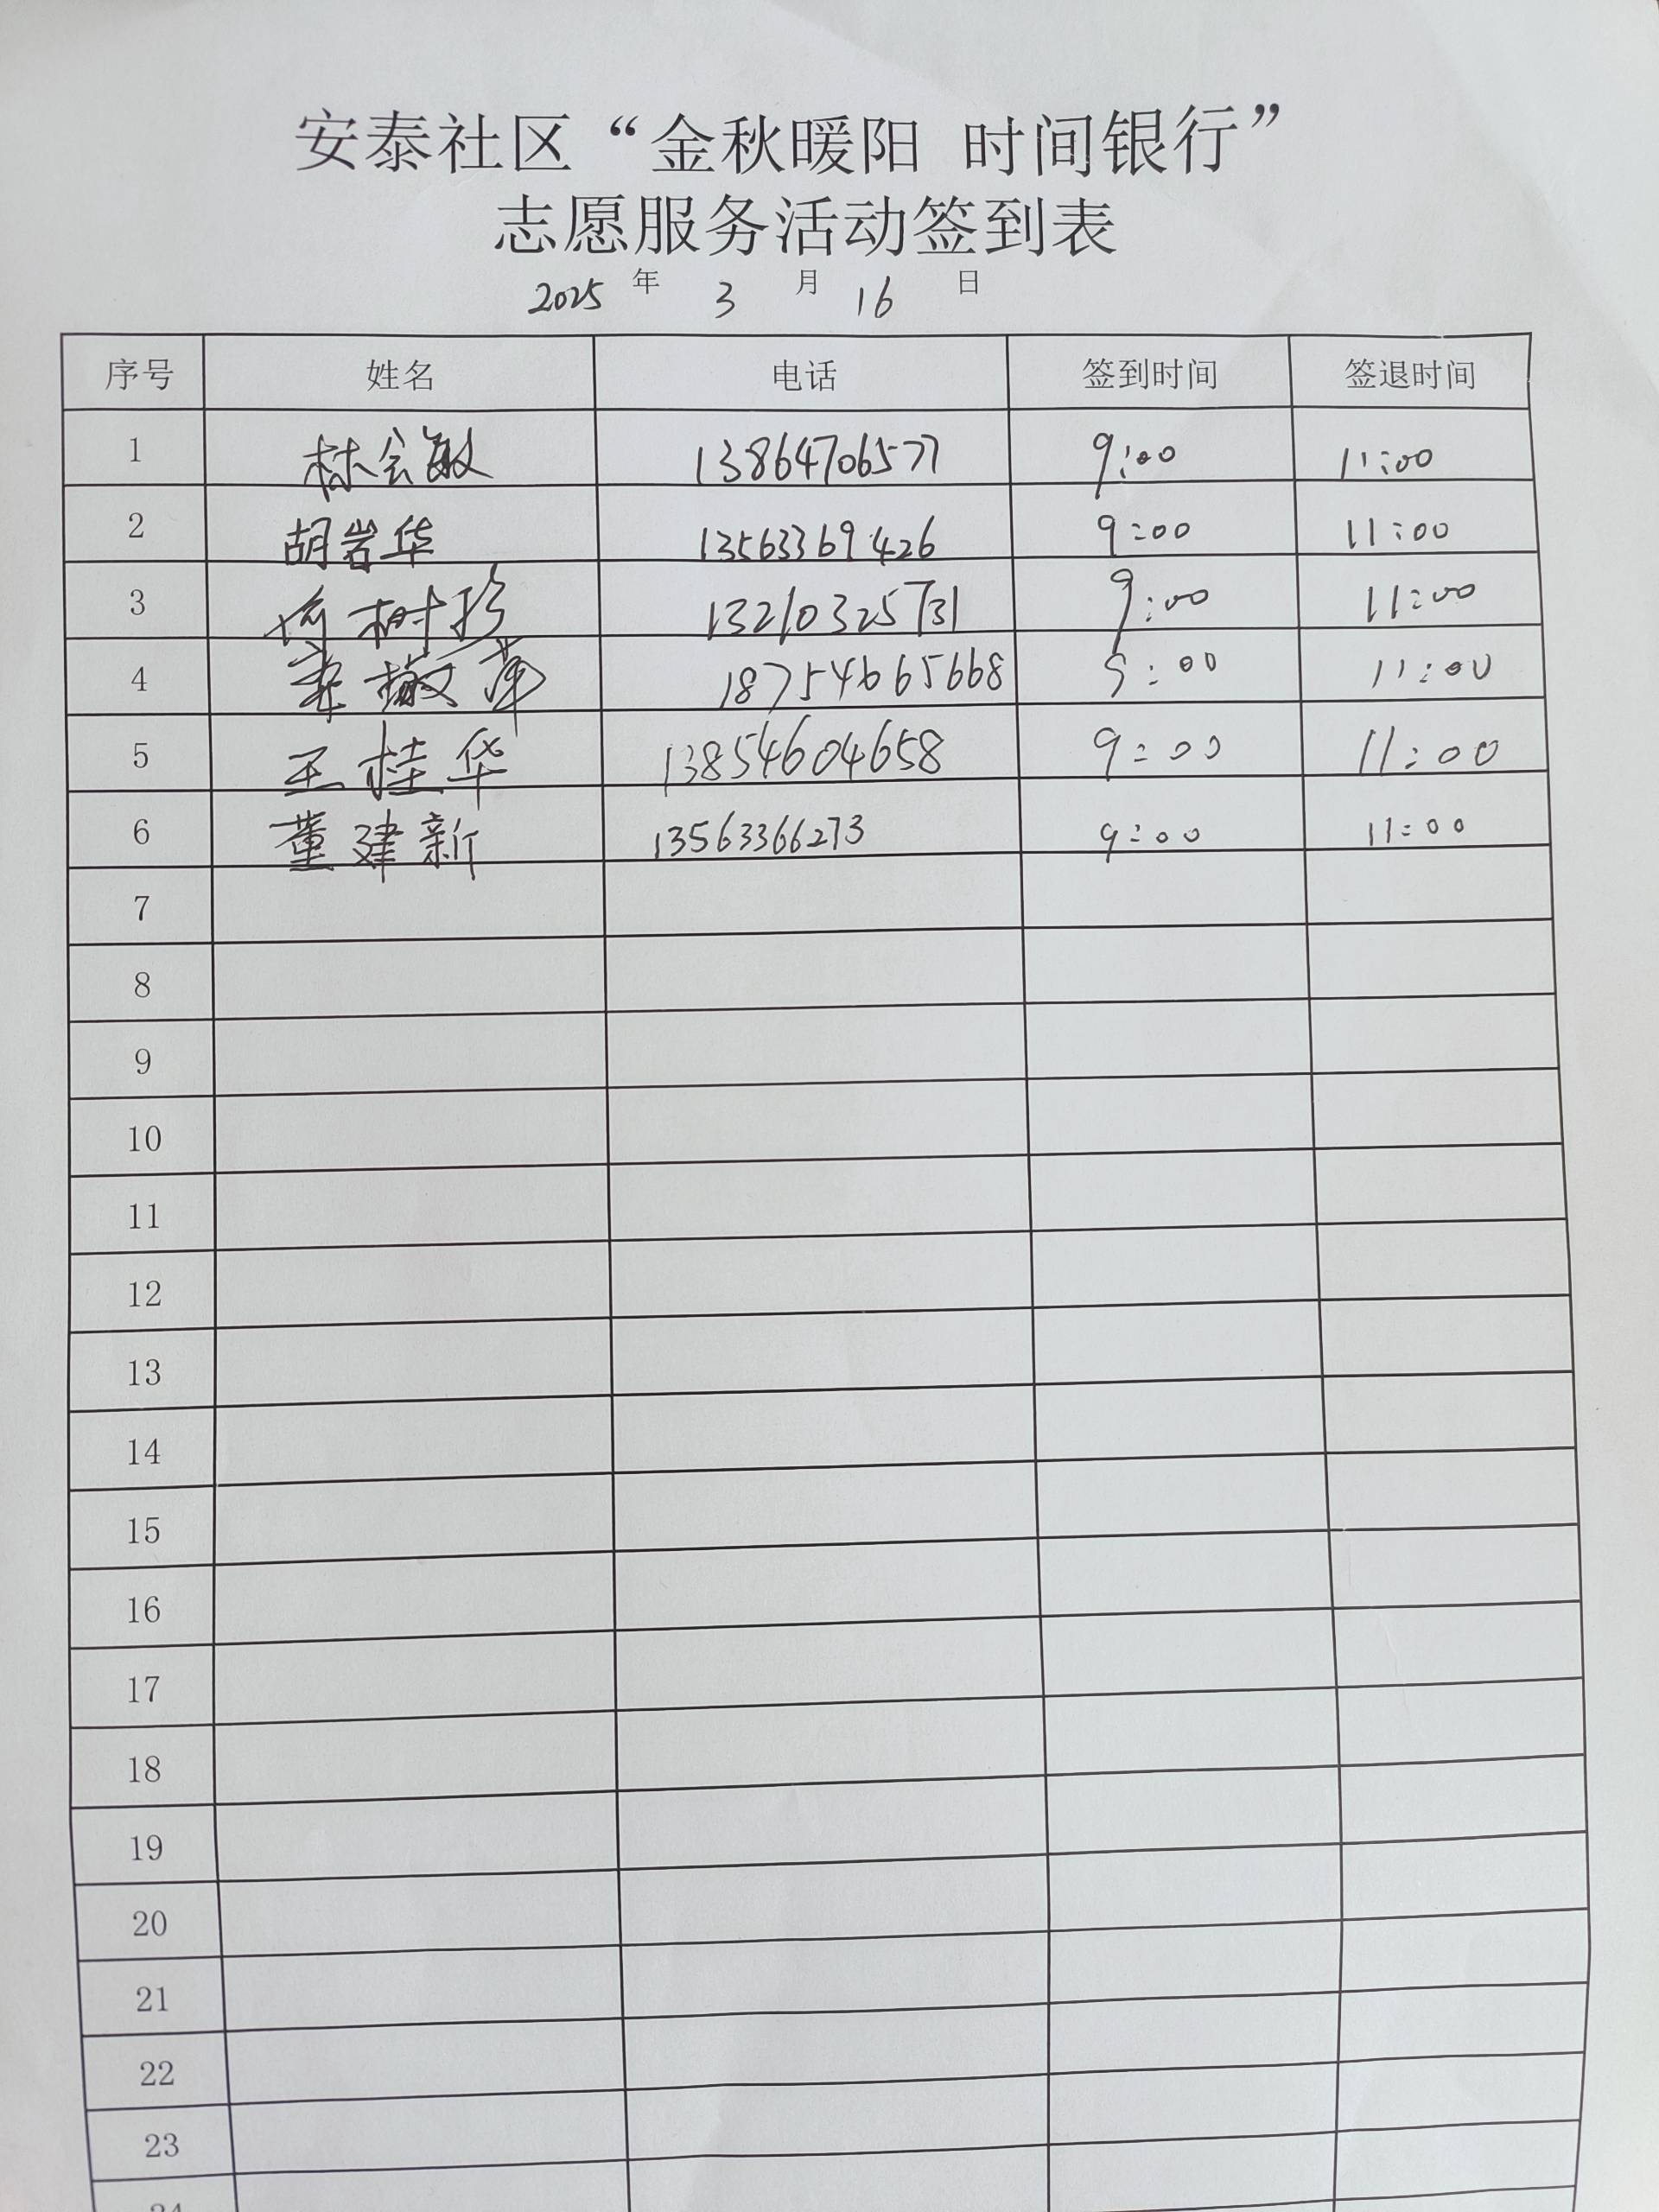 安泰社区“金秋暖阳 时间银行”
志愿服务活动签到表
2025 年 3 月 16 日
序号 姓名 电话 签到时间 签退时间
1 林会敏 13864706577 9:00 11:00
2 胡岩华 13563369426 9:00 11:00
3 树珍 13210325731 9:00 11:00
4 18754665668 9:00 11:00
5 王桂华 13854604658 9:00 11:00
6 董建新 13563366273 9:00 11:00
7
8
9
10
11
12
13
14
15
16
17
18
19
20
21
22
23
24